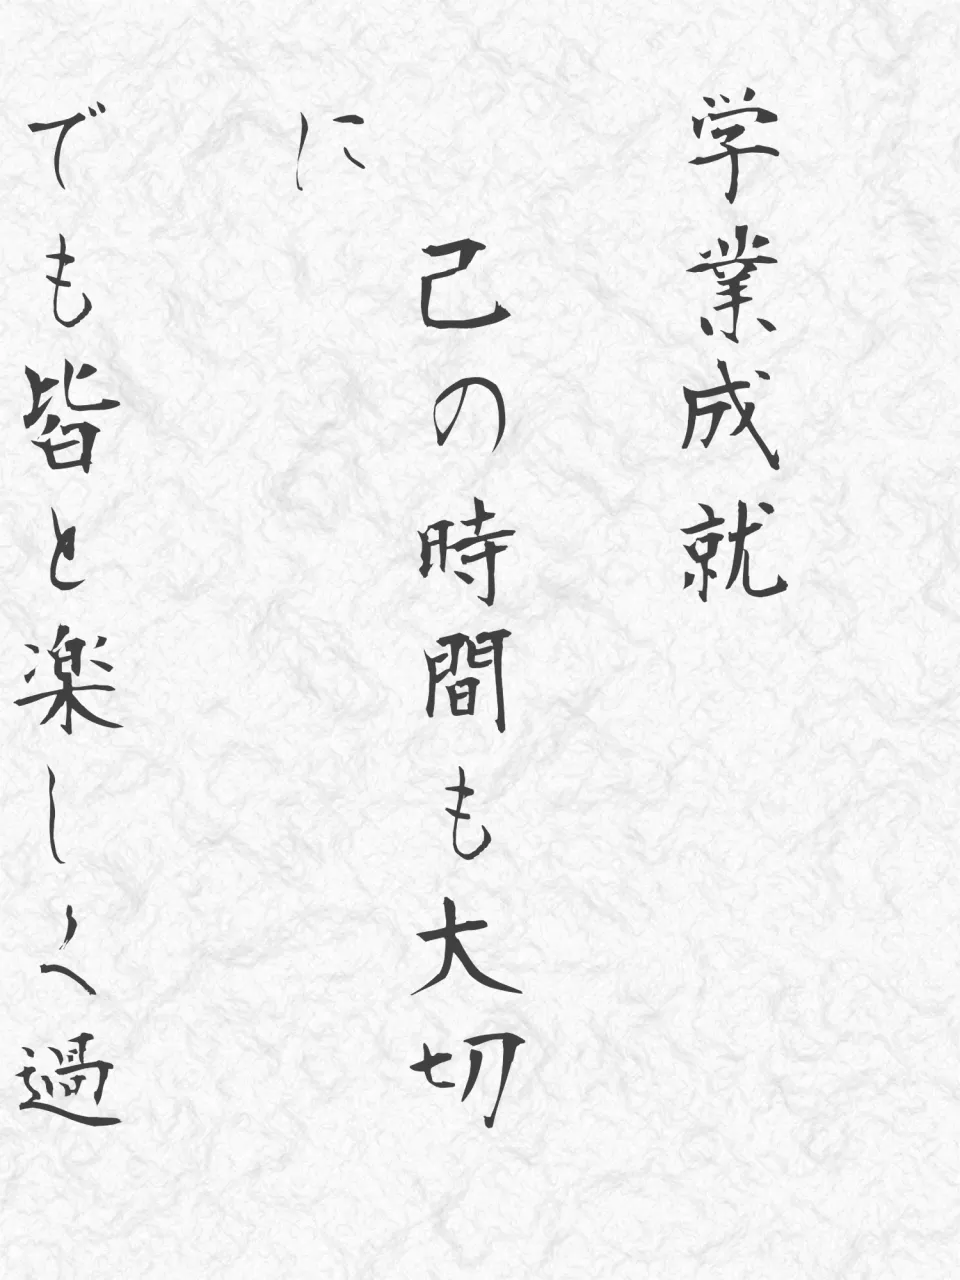 学業成就
己の時間も大切
に
でも皆と楽しく過